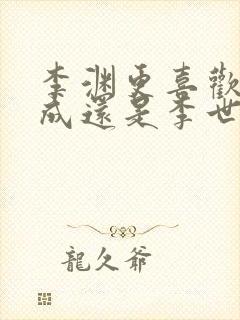 李渊更喜歡
成還是李世
龍久爺